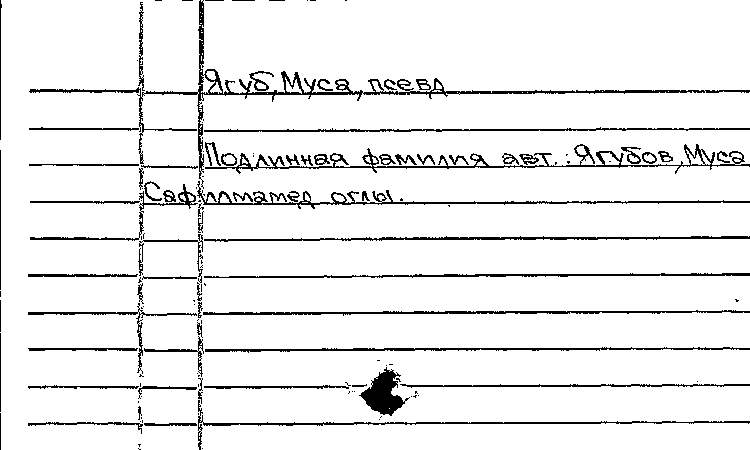 Ягуб, Муса, псевд
Подлинная фамилия авт.: Ягубов, Муса
Сафиллмамед оглы.